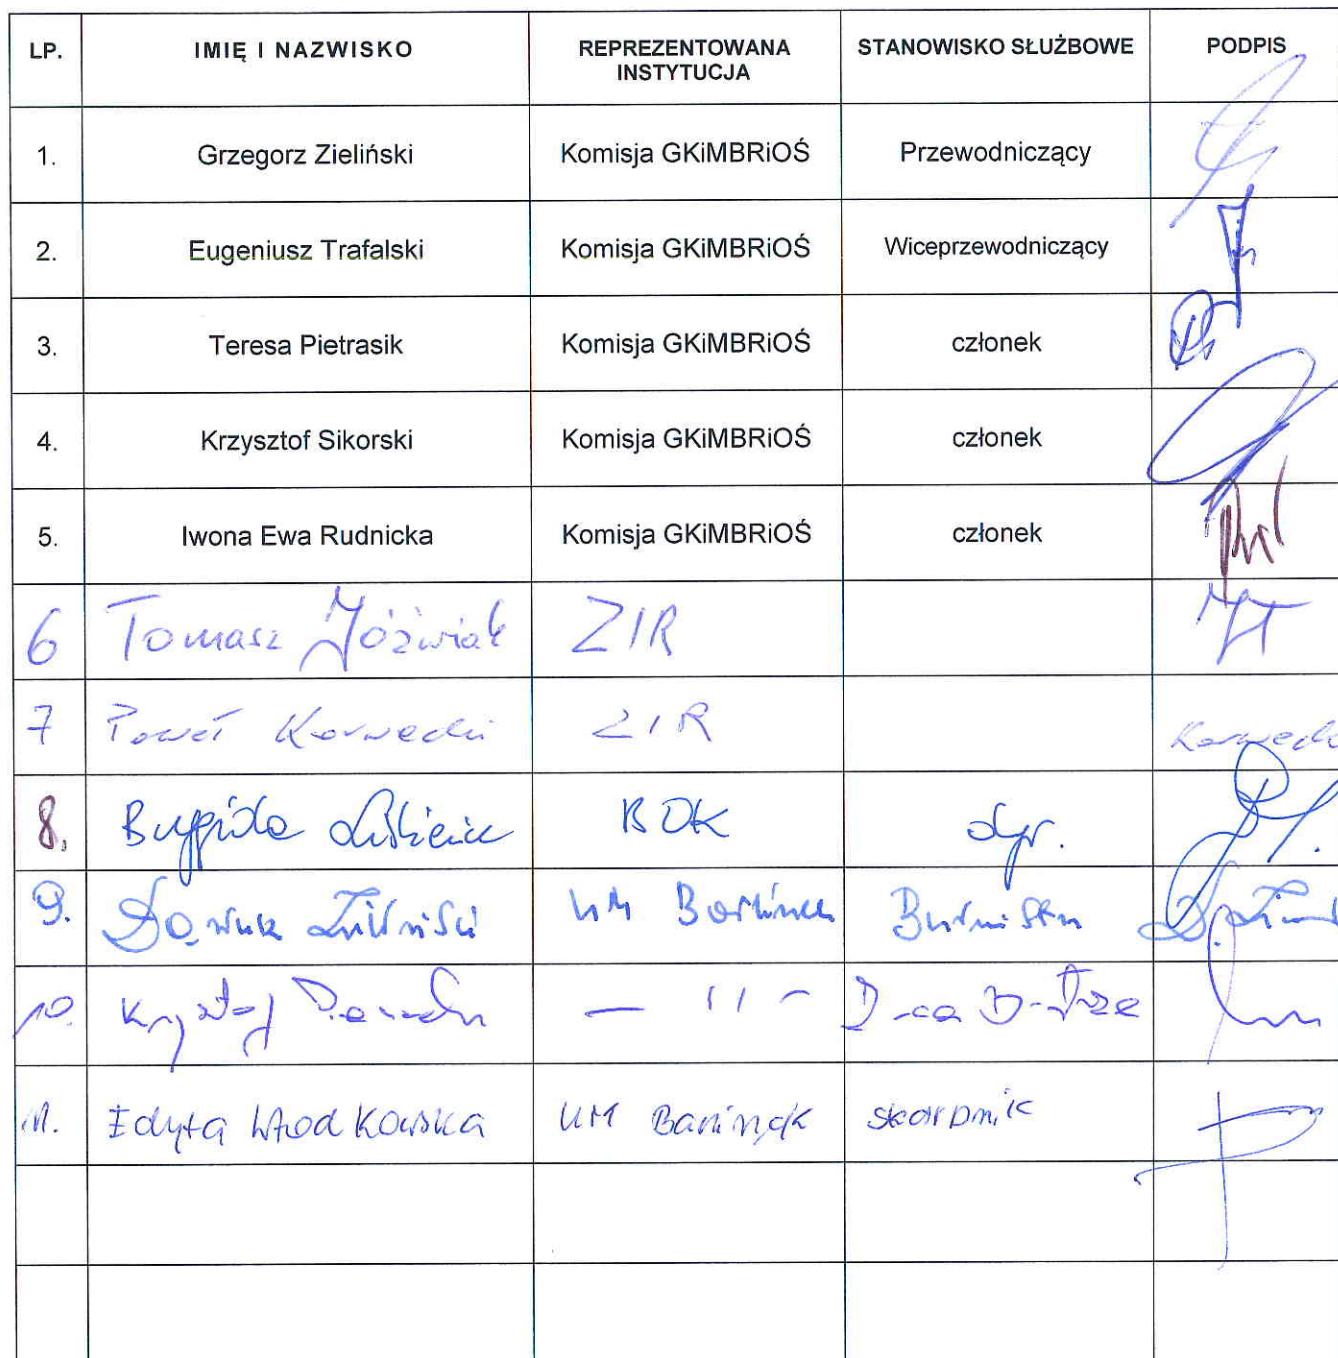 LP. IMIĘ I NAZWISKO REPREZENTOWANA INSTYTUCJA STANOWISKO SŁUŻBOWE PODPIS
1. Grzegorz Zieliński Komisja GKiMBRiOŚ Przewodniczący
2. Eugeniusz Trafalski Komisja GKiMBRiOŚ Wiceprzewodniczący
3. Teresa Pietrasik Komisja GKiMBRiOŚ członek
4. Krzysztof Sikorski Komisja GKiMBRiOŚ członek
5. Iwona Ewa Rudnicka Komisja GKiMBRiOŚ członek
6 Tomasz Jóźwiak ZIR
7 Paweł ZIR
8. BOK dyr.
9. UM Barlinek Burmistrz
10. — 11 —
11. Edyta Włodkowska UM Barlinek skarbnik